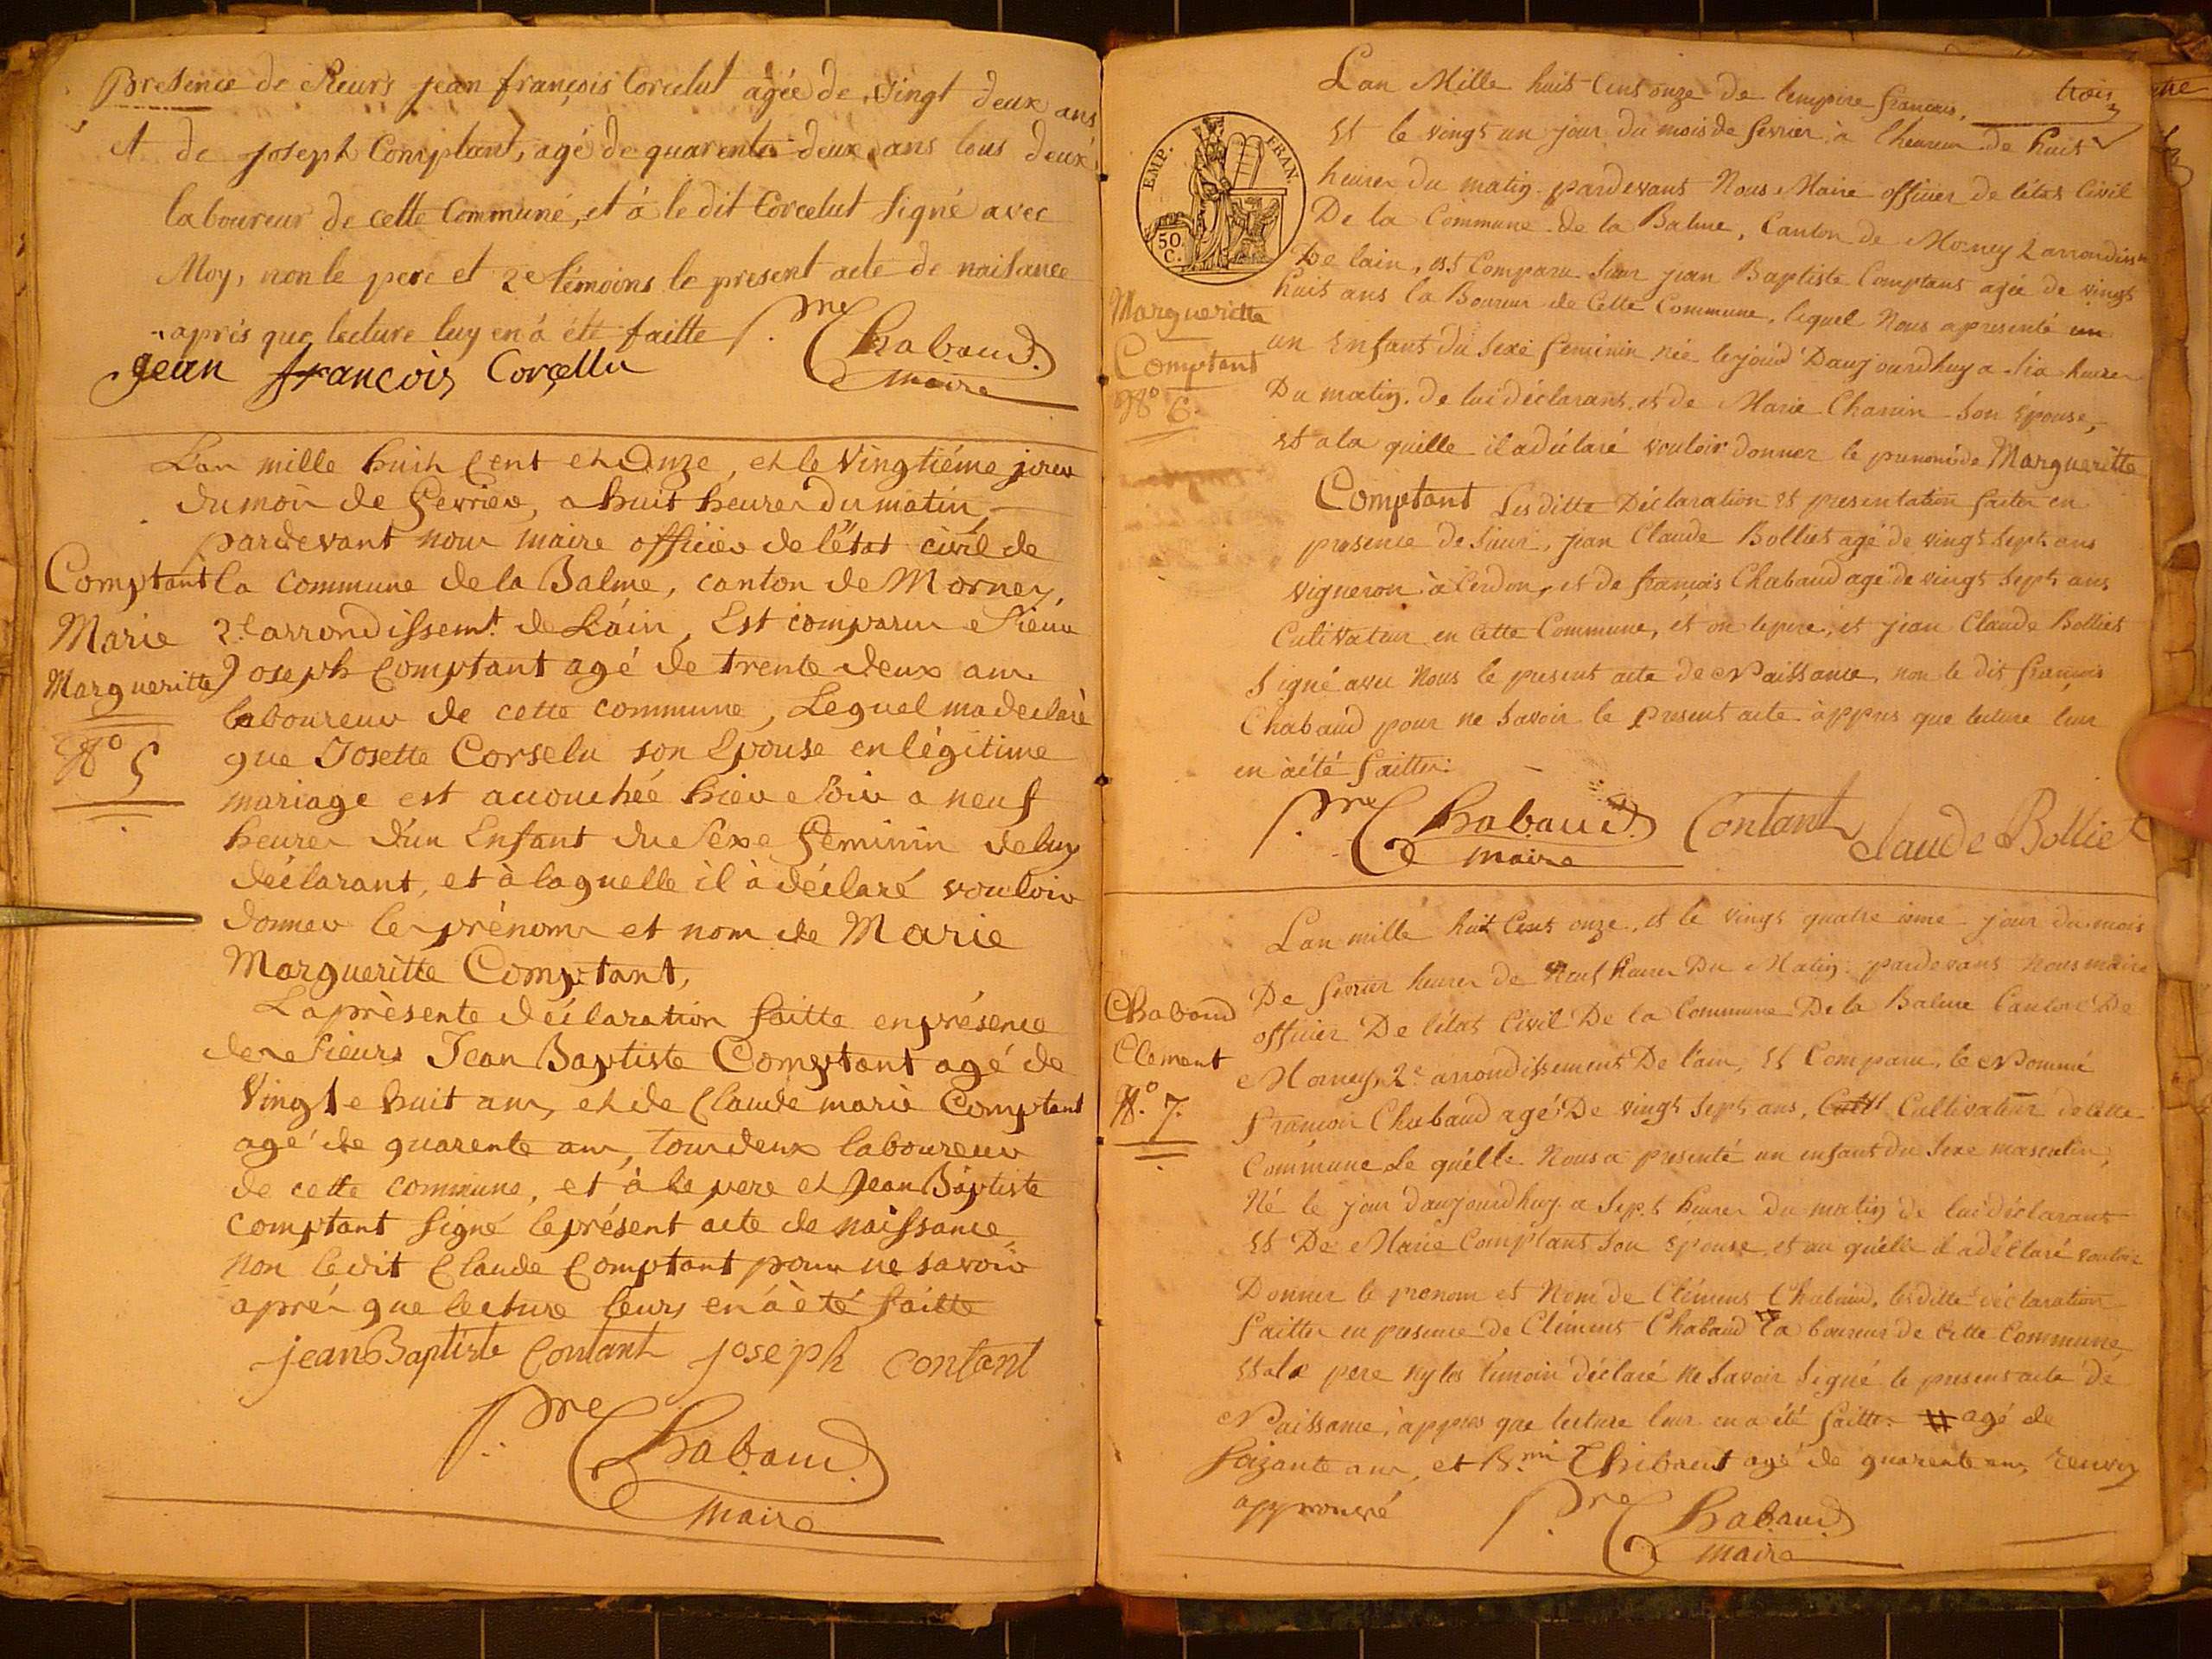 presence de sieurs jean françois Corcelut agée de vingt deux ans
et de joseph Comptant, agé de quarente deux ans tous deux
laboureur de cette Commune, et à le dit Corcelut signé avec
Moy, non le pere et 2e témoins le present acte de naisance
après que lecture luy en à été faitte
jean françois Corcellu
pre Chabaud
maire
L'an mille huit Cent et Onze, et le Vingtiéme jour
du mois de fevrier, a huit heures du matin,
pardevant nous maire officier de l'état civil de
la commune de la Balme, canton de Mornex,
2e arrondissemt de L'ain, Est comparu Sieur
Joseph Comptant agé de trente deux ans
laboureur de cette commune, Lequel ma declaré
que Josette Corselu son Epouse en légitime
mariage est accouchée hier soir a neuf
heures d'un Enfant du Sexe féminin de luy
déclarant, et à laquelle il à déclaré vouloir
donner les prénoms et nom de Marie
Margueritte Comptant,
La présente déclaration faitte en présence
de sieurs Jean Baptiste Comptant agé de
Vingt huit ans, et de Claude marie Comptant
agé de quarente ans, tous deux laboureur
de cette commune, et à le pere et Jean Baptiste
comptant signé le présent acte de naissance,
Non ledit Claude Comptant pour ne savoir
aprés que lecture leurs en à été faitte
jean Baptiste Contant joseph contant
pre Chabaud
maire
Comptant
Marie
Margueritte
No 5
trois
Lan Mille huit Cens onze de lempire francais,
Et le vingt un jour du mois de fevrier à lheure de huit
heures du matin pardevant Nous Maire officier de létat Civil
De la Commune de la Balme, Canton de Morney 2 arrondissm
De lain, est Comparu Sieur jean Baptiste Comptant agée de vingt
huit ans la Boureur de Cette Commune, lequel Nous apresenté un
un Enfant du Sexe feminin née lejourd Daujourdhuy a Six heures
Du matin. de lui déclarant, et de Marie Charvin Son Epouse,
Et a la quelle il adéclaré vouloir donner le prenom de Margueritte
Comptant Lesditte Déclaration et presentation faites en
presence de Sieur, jean Claude Bolliet agé de vingt Sept ans
vigneron à Cerdon, et de françois Chabaud agé de vingt Sept ans
Cultivateur en Cette Commune, et on le pere, et jean Claude Bolliet
Signé avec Nous le present acte de Naissance, non le dit françois
Chabaud pour ne Savoir le present acte àppres que lecture leur
en àété faittes.
pre Chabaud Contant Claude Bolliet
maire
EMP. FRAN.
50. C.
Margueritte
Comptant
No 6.
Lan mille huit Cens onze, et le vingt quatre ieme jour du mois
De fevrier heures de Neuf heures Du Matin pardevant Nous maire
officier De létat Civil De la Commune De la Balme Canton De
Morney, 2e arrondissement De l'ain, Et Comparu, le Nommé
françois Chabaud agé De vingt Sept ans, Cultivateur de Cette
Commune Le quélle Nous a presenté un enfant du Sexe masculin,
Né le jour daujourdhuy a Sept heures du matin de lui déclarant
Et De Marie Comptant Son Epouse, et au quélle il adéclaré vouloir
Donner le prenom et Nom de Clément Chabaud, lesditte déclaration
faittes en presence de Clement Chabaud # la boureur de Cette Commune,
Et a le pere ny les témoin déclaré Ne Savoir Signé le present acte De
Naissance, àppres que lecture leur en a été faitte. # agé de
Soizante ans, et Chibaut agé de quarente ans, renvoy
approuvé
pre Chabaud
maire
Chabaud
Clement
No. 7.